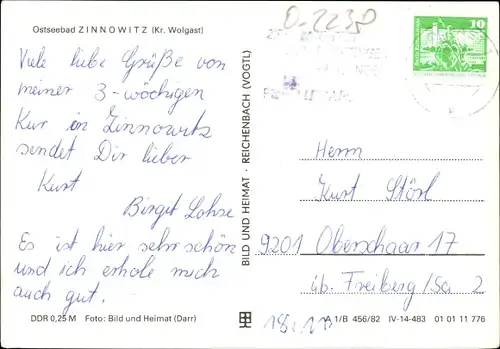 Ostseebad ZINNOWITZ (Kr. Wolgast)
Viele liebe Grüße von
meiner 3-wöchigen
Kur in Zinnowitz
sendet Dir lieber
Kurt
Birgit Lohse
Es ist hier sehr schön
und ich erhole mich
auch gut.
DDR 0,25 M Foto: Bild und Heimat (Darr)
BILD UND HEIMAT · REICHENBACH (VOGTL)
0-2230
10
Herrn
Kurt Störl
9201 Oberschaar 17
üb. Freiberg/Sa 2
A 1/B 456/82 IV-14-483 01 01 11 776